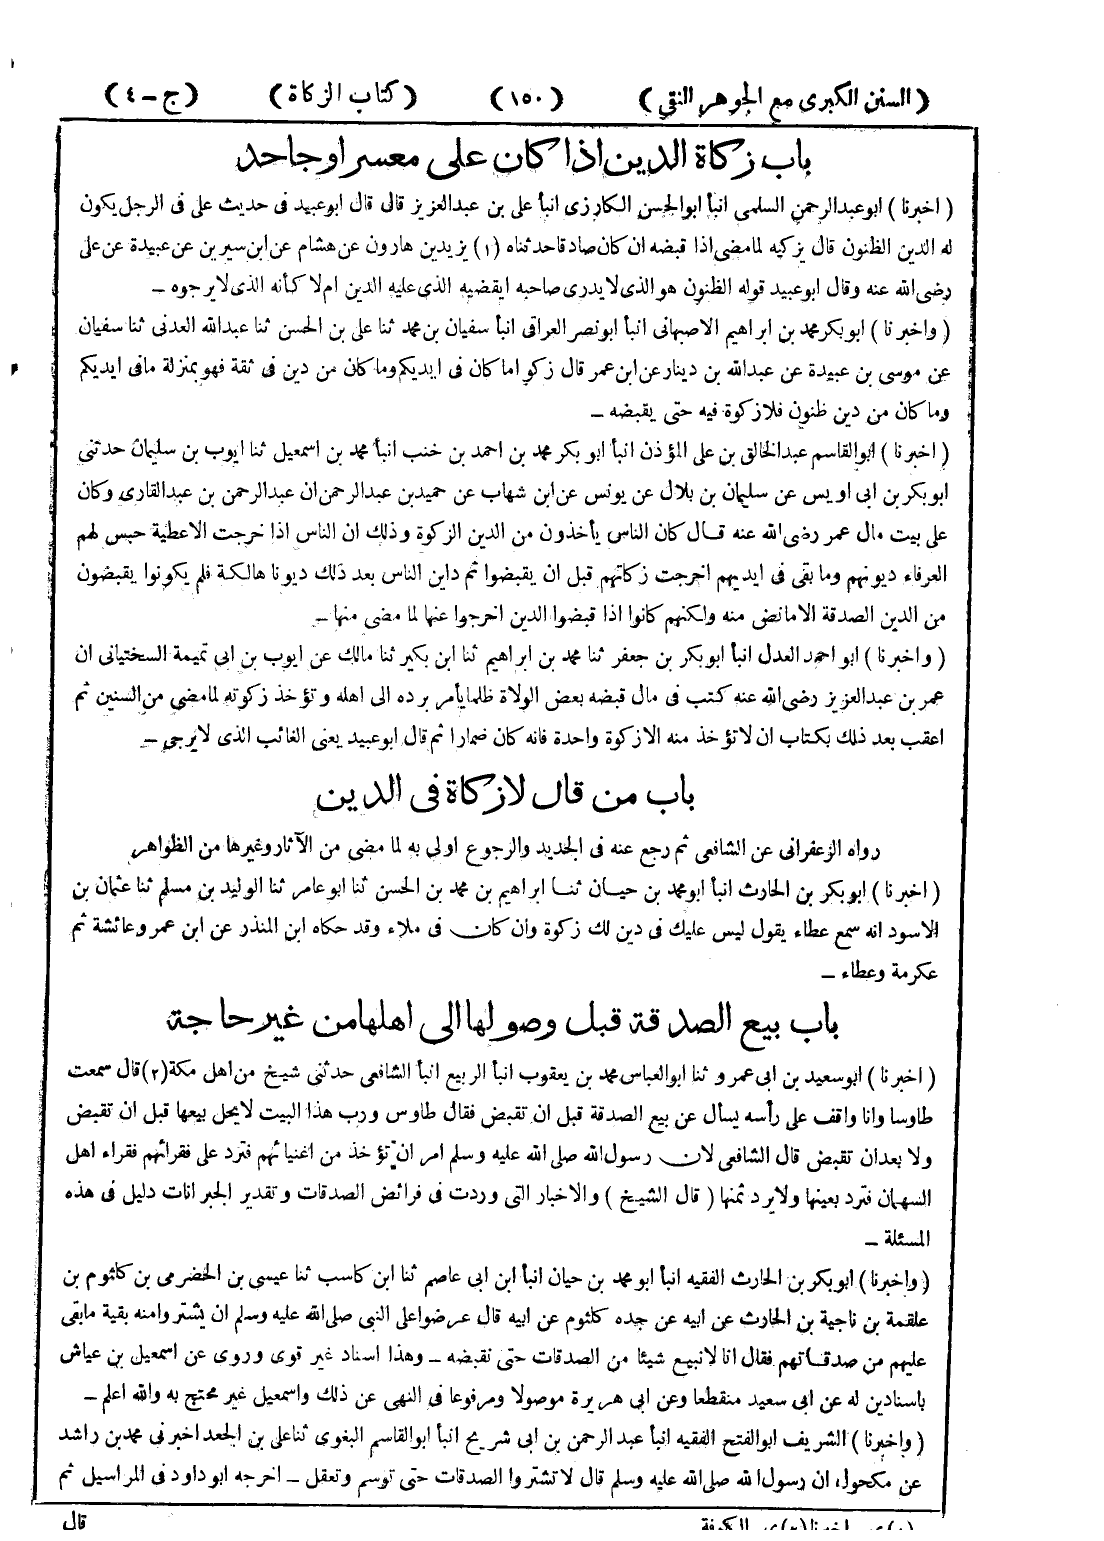 (السنن الكبرى مع الجوهر النقي) (١٥٠) (كتاب الزكاة) (ج-٤)
باب زكاة الدين اذا كان على معسر او جاحد
(اخبرنا) ابو عبد الرحمن السلمى انبأ ابو الحسن الكارزى انبأ على بن عبد العزيز قال قال ابو عبيد فى حديث على فى الرجل يكون
له الدين الظنون قال يزكيه لما مضى اذا قبضه ان كان صادقا حدثناه (١) يزيد بن هارون عن هشام عن ابن سيرين عن عبيدة عن على
رضى الله عنه وقال ابو عبيد قوله الظنون هو الذى لا يدرى صاحبه ايقضيه الذى عليه الدين ام لا كأنه الذى لا يرجوه ـ
(واخبرنا) ابو بكر محمد بن ابراهيم الاصبهانى انبأ ابو نصر العراقى انبأ سفيان بن محمد ثنا على بن الحسن ثنا عبد الله العدنى ثنا سفيان
عن موسى بن عبيدة عن عبد الله بن دينار عن ابن عمر قال زكوا ما كان فى ايديكم وما كان من دين فى ثقة فهو بمنزلة ما فى ايديكم
وما كان من دين ظنون فلا زكوة فيه حتى يقبضه ـ
(اخبرنا) ابو القاسم عبد الخالق بن على المؤذن انبأ ابو بكر محمد بن احمد بن خنب انبأ محمد بن اسمعيل ثنا ايوب بن سليمان حدثنى
ابو بكر بن ابى اويس عن سليمان بن بلال عن يونس عن ابن شهاب عن حميد بن عبد الرحمن ان عبد الرحمن بن عبد القارى وكان
على بيت مال عمر رضى الله عنه قال كان الناس يأخذون من الدين الزكوة وذلك ان الناس اذا خرجت الاعطية حبس لهم
العرفاء ديونهم وما بقى فى ايديهم اخرجت زكاتهم قبل ان يقبضوا ثم داين الناس بعد ذلك ديونا هالكة فلم يكونوا يقبضون
من الدين الصدقة الا ما نض منه ولكنهم كانوا اذا قبضوا الدين اخرجوا عنها لما مضى منها ـ
(واخبرنا) ابو احمد العدل انبأ ابو بكر بن جعفر ثنا محمد بن ابراهيم ثنا ابن بكير ثنا مالك عن ايوب بن ابى تميمة السختيانى ان
عمر بن عبد العزيز رضى الله عنه كتب فى مال قبضه بعض الولاة ظلما يأمر برده الى اهله وتؤخذ زكوته لما مضى من السنين ثم
اعقب بعد ذلك بكتاب ان لا تؤخذ منه الا زكوة واحدة فانه كان ضمارا ثم قال ابو عبيد يعنى الغائب الذى لا يرجى ـ
باب من قال لا زكاة فى الدين
رواه الزعفرانى عن الشافعى ثم رجع عنه فى الجديد والرجوع اولى به لما مضى من الآثار وغيرها من الظواهر
(اخبرنا) ابو بكر بن الحارث انبأ ابو محمد بن حيان ثنا ابراهيم بن محمد بن الحسن ثنا ابو عامر ثنا الوليد بن مسلم ثنا عثمان بن
الاسود انه سمع عطاء يقول ليس عليك فى دين لك زكوة وان كان فى ملاء وقد حكاه ابن المنذر عن ابن عمر وعائشة ثم
عكرمة وعطاء ـ
باب بيع الصدقة قبل وصولها الى اهلها من غير حاجة
(اخبرنا) ابو سعيد بن ابى عمرو ثنا ابو العباس محمد بن يعقوب انبأ الربيع انبأ الشافعى حدثنى شيخ من اهل مكة (٢) قال سمعت
طاوسا وانا واقف على رأسه يسأل عن بيع الصدقة قبل ان تقبض فقال طاوس ورب هذا البيت لا يحل بيعها قبل ان تقبض
ولا بعد ان تقبض قال الشافعى لان رسول الله صلى الله عليه وسلم امر ان تؤخذ من اغنيائهم فترد على فقرائهم فقراء اهل
السهمان فترد بعينها ولا يرد ثمنها (قال الشيخ) والاخبار التى وردت فى فرائض الصدقات وتقدير الجبرانات دليل فى هذه
المسئلة ـ
(واخبرنا) ابو بكر بن الحارث الفقيه انبأ ابو محمد بن حيان انبأ ابن ابى عاصم ثنا ابن كاسب ثنا عيسى بن الحضرمى بن كلثوم بن
علقمة بن ناجية بن الحارث عن ابيه عن جده كلثوم عن ابيه قال عرضوا على النبى صلى الله عليه وسلم ان يشتروا منه بقية ما بقى
عليهم من صدقاتهم فقال انا لا نبيع شيئا من الصدقات حتى نقبضه ـ وهذا اسناد غير قوى وروى عن اسمعيل بن عياش
باسنادين له عن ابى سعيد منقطعا وعن ابى هريرة موصولا ومرفوعا فى النهى عن ذلك واسمعيل غير محتج به والله اعلم ـ
(واخبرنا) الشريف ابو الفتح الفقيه انبأ عبد الرحمن بن ابى شريح انبأ ابو القاسم البغوى ثنا على بن الجعد اخبرنى محمد بن راشد
عن مكحول ان رسول الله صلى الله عليه وسلم قال لا تشتروا الصدقات حتى توسم وتعقل ـ اخرجه ابو داود فى المراسيل ثم
قال